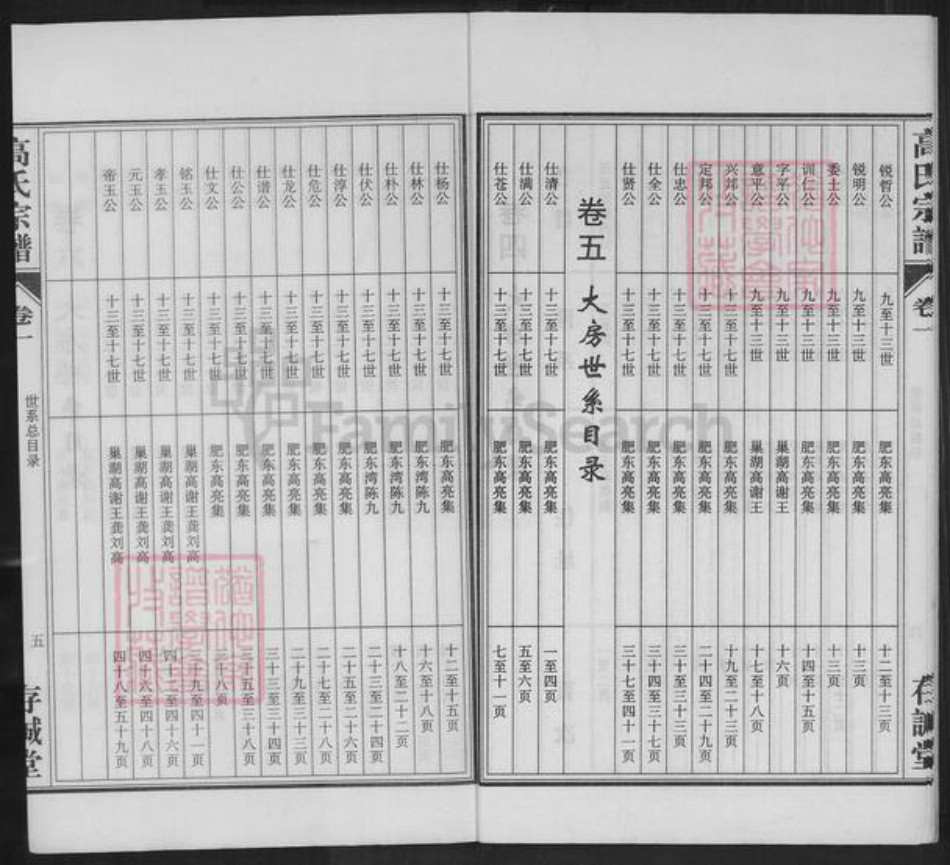 高氏宗谱
卷一
存诚堂
锐哲公 九至十三世 肥东高亮集 十二至十三页
锐明公 九至十三世 肥东高亮集 十三页
委士公 九至十三世 肥东高亮集 十三页
训仁公 九至十三世 肥东高亮集 十四至十五页
字平公 九至十三世 巢湖高谢王 十六页
意平公 九至十三世 巢湖高谢王 十七至十八页
兴邦公 十三至十七世 肥东高亮集 十九至二十三页
定邦公 十三至十七世 肥东高亮集 二十四至二十九页
仕忠公 十三至十七世 肥东高亮集 三十至三十三页
仕全公 十三至十七世 肥东高亮集 三十四至三十七页
仕贤公 十三至十七世 肥东高亮集 三十七至四十一页
卷五 大房世系目录
仕清公 十三至十七世 肥东高亮集 一至四页
仕满公 十三至十七世 肥东高亮集 五至六页
仕苍公 十三至十七世 肥东高亮集 七至十一页
仕杨公 十三至十七世 肥东高亮集 十二至十五页
仕林公 十三至十七世 肥东湾陈九 十六至十八页
仕朴公 十三至十七世 肥东湾陈九 十八至二十二页
仕伏公 十三至十七世 肥东湾陈九 二十三至二十四页
仕淳公 十三至十七世 肥东高亮集 二十五至二十六页
仕危公 十三至十七世 肥东高亮集 二十七至二十八页
仕龙公 十三至十七世 肥东高亮集 二十九至三十三页
仕谱公 十三至十七世 肥东高亮集 三十三至三十四页
仕公公 十三至十七世 肥东高亮集 三十五至三十八页
仕文公 十三至十七世 肥东高亮集 三十八页
铭玉公 十三至十七世 巢湖高谢王龚刘高 三十九至四十一页
孝玉公 十三至十七世 巢湖高谢王龚刘高 四十二至四十六页
元玉公 十三至十七世 巢湖高谢王龚刘高 四十六至四十八页
帝玉公 十三至十七世 巢湖高谢王龚刘高 四十八至五十九页
高氏宗谱
卷一
世系总目录
五
存诚堂
FamilySearch